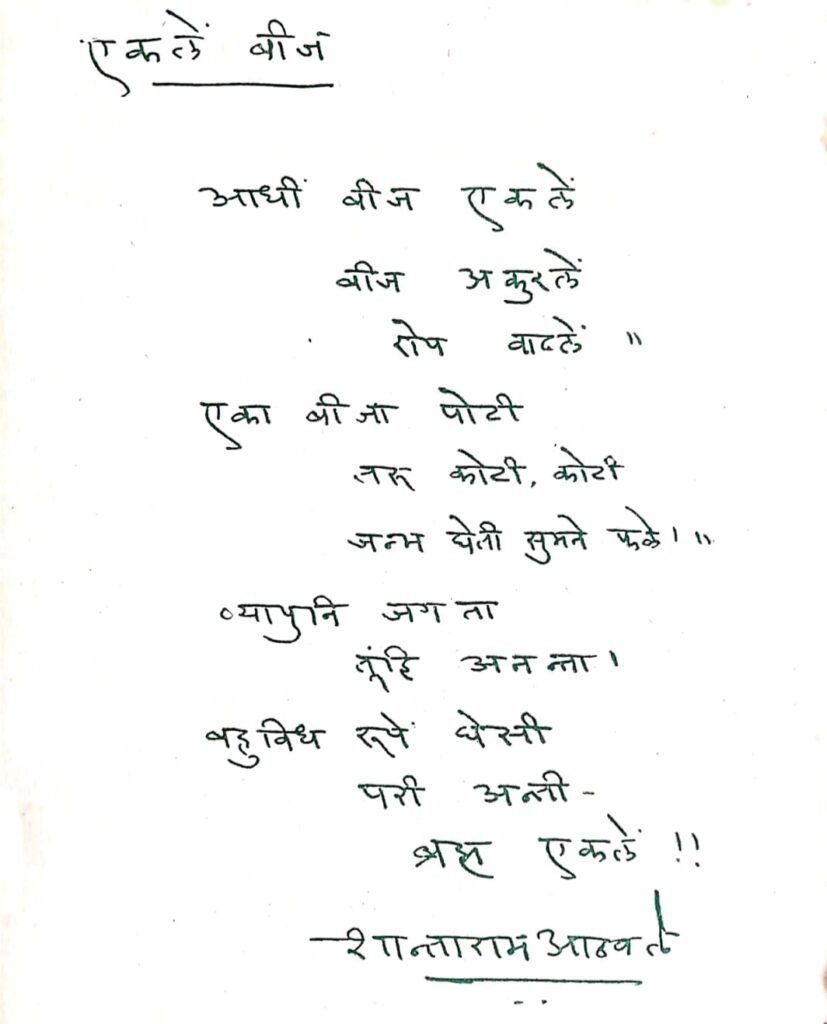 एकलें बीज
आधीं बीज एकलें
बीज अंकुरलें
रोप वाढलें ॥
एका बीजा पोटी
तरू कोटी, कोटी
जन्म घेती सुमने फळे। ॥
व्यापुनि जगता
तूंहि अनन्ता।
बहुविध रूपें घेसी
परी अन्ती -
ब्रह्म एकलें !!
— शान्ताराम आठवले